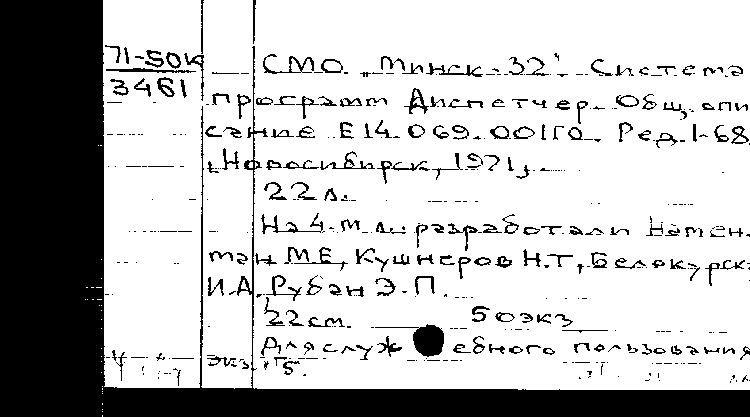 71-50к
3461
СМО "Минск-32". Система
программ Диспетчер. Общ. опи
сание Е14.069.001ТО. Ред. 1-68.
Новосибирск, 1971,.
22 л.
На 4-м л.: разработали Натен-
ман М.Е, Кушнеров Н.Т, Белокурск
И.А. Рубан Э.П.
22 см. 50 экз
Для служебного пользования
экз. 5.